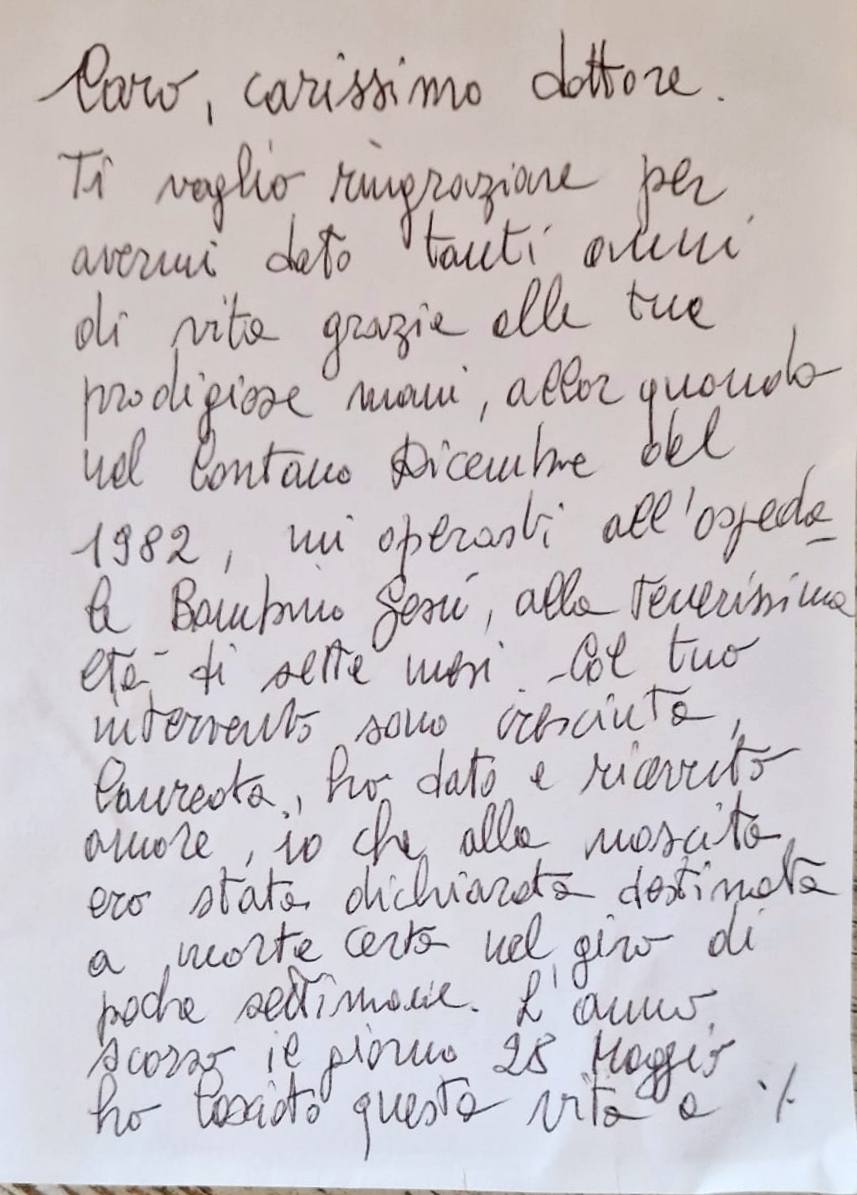 Caro, carissimo dottore.
Ti voglio ringraziare per
avermi dato tanti anni
di vita grazie alle tue
prodigiose mani, allor quando
nel lontano Dicembre del
1982, mi operasti all'ospeda
le Bambino Gesú, alla tenerissima
età di sette mesi. Col tuo
intervento sono cresciuta,
laureata, ho dato e ricevuto
amore, io che alla nascita
ero stata dichiarata destinata
a morte certa nel giro di
poche settimane. L'anno
scorso il giorno 28 Maggio
ho lasciato questa vita a ·/.